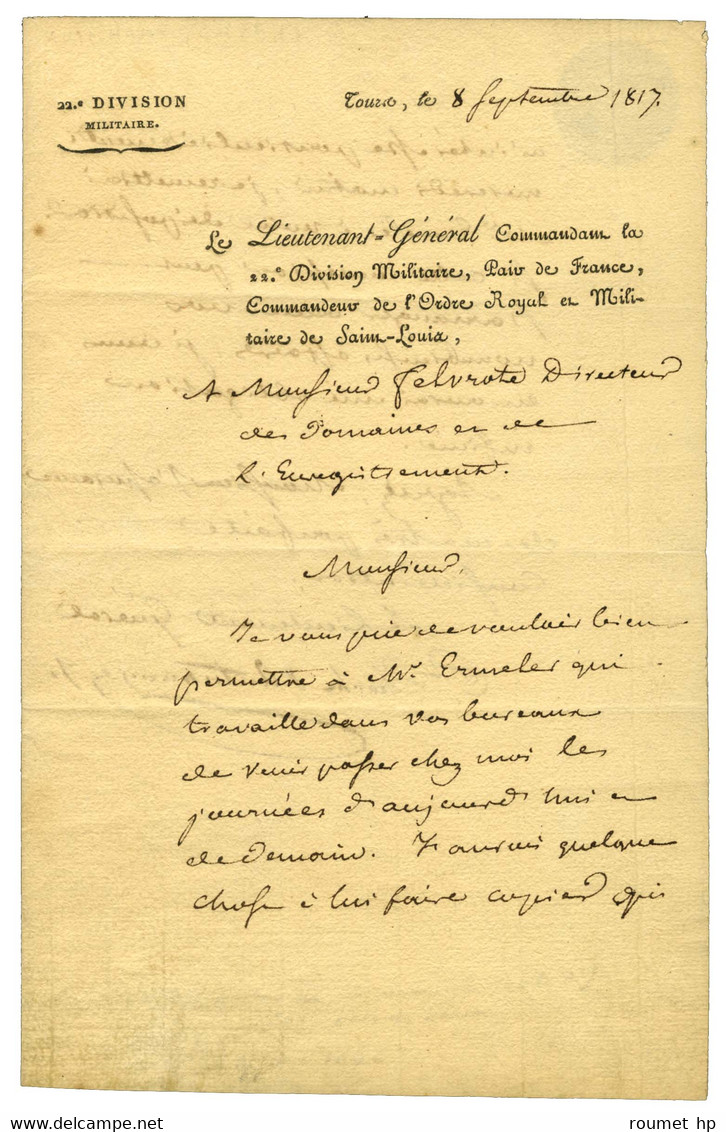 22.e DIVISION
MILITAIRE.
Tours, le 8 Septembre 1817.
Le Lieutenant-Général Commandant la
22.e Division Militaire, Pair de France,
Commandeur de l'Ordre Royal et Mili-
taire de Saint-Louis,
A Monsieur Directeur
des Domaines et de
L'Enregistrement.
Monsieur,
Je vous prie de vouloir bien
permettre à Mr. Ermeler qui
travaille dans vos bureaux
de venir passer chez moi les
journées d'aujourd'hui et
de demain. J'aurais quelque
chose à lui faire copier qui
roumet hp